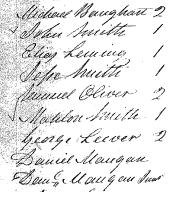 Michael Baughart 2
John Smith 1
Elias Leming 1
Jesse Smith 1
Samuel Oliver 2
Mahlon Smith 1
George Leever 2
Daniel Maugan
Danl Maugan Junr